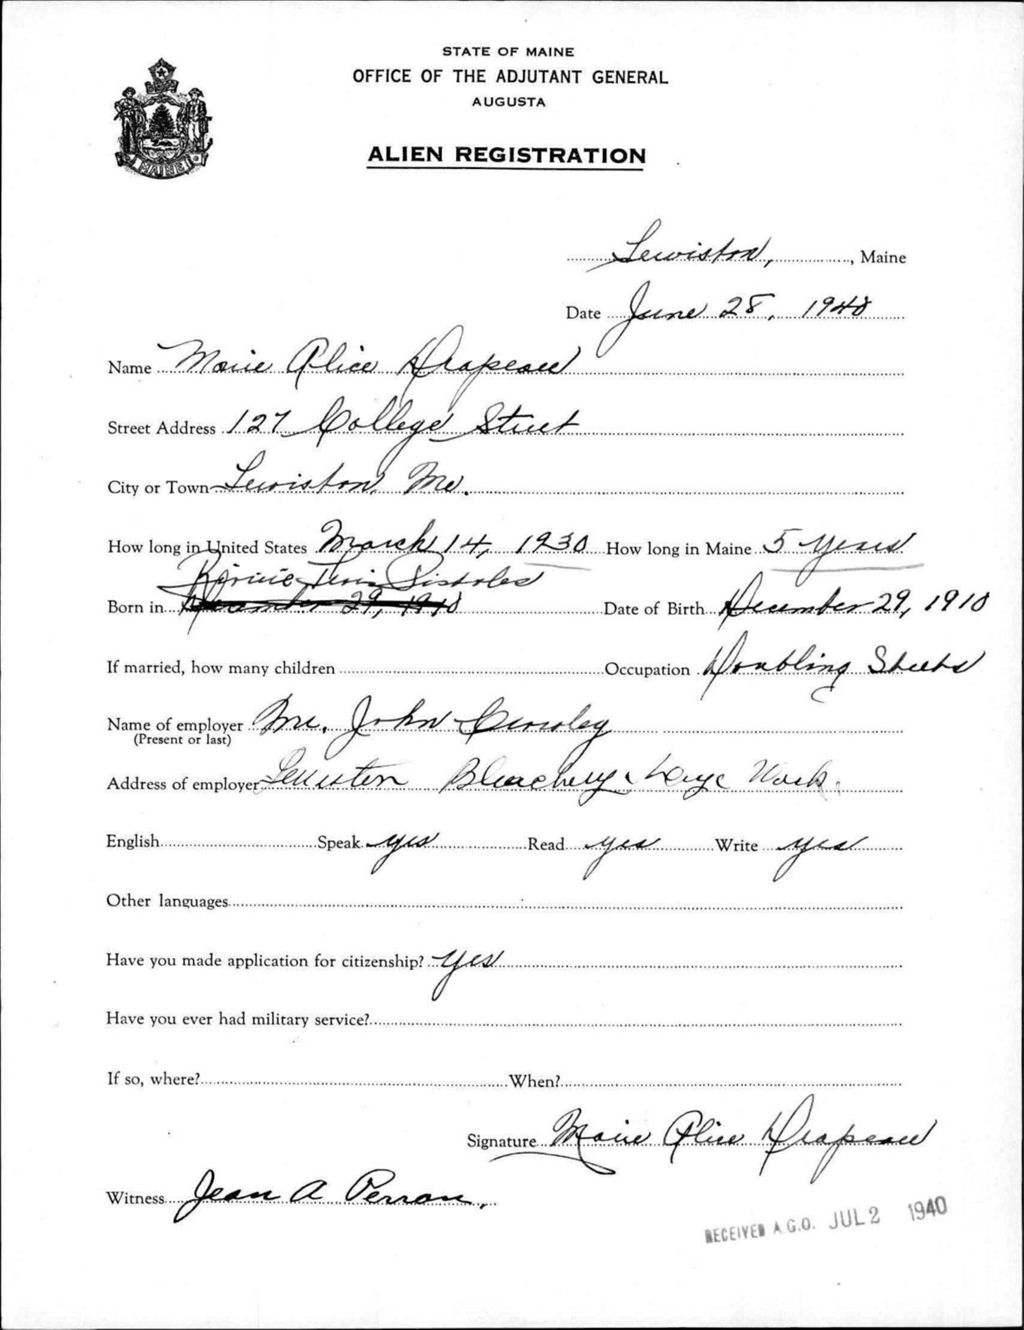 STATE OF MAINE
OFFICE OF THE ADJUTANT GENERAL
AUGUSTA
ALIEN REGISTRATION
MAINE
Lewiston, , Maine
Date June 28, 1940
Name Marie Alice Drapeau
Street Address 127 College Street
City or Town Lewiston, Me.
How long in United States March 14, 1930 How long in Maine 5 years
Born in December 29, 1910 Date of Birth December 29, 1910
If married, how many children Occupation Doubling Sheets
Name of employer Mr. John Crowley
(Present or last)
Address of employer Lewiston Bleachery & Dye Work.
English Speak yes Read yes Write yes
Other languages
Have you made application for citizenship? yes
Have you ever had military service?
If so, where? When?
Signature Marie Alice Drapeau
Witness Jean A Perron,
RECEIVED A.G.O. JUL 2 1940